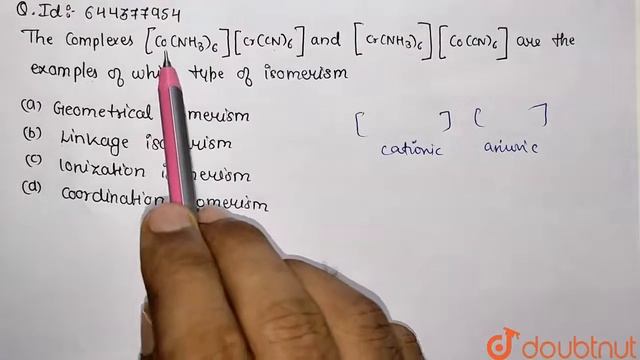 Q.Id:- 644377954
The Complexes [Co(NH3)6][Cr(CN)6] and [Cr(NH3)6][Co(CN)6] are the
examples of type of isomerism
(a) Geometrical
(b) Linkage
(c) Ionization
(d) Coordination
[ ] [ ]
cationic anionic
doubtnut